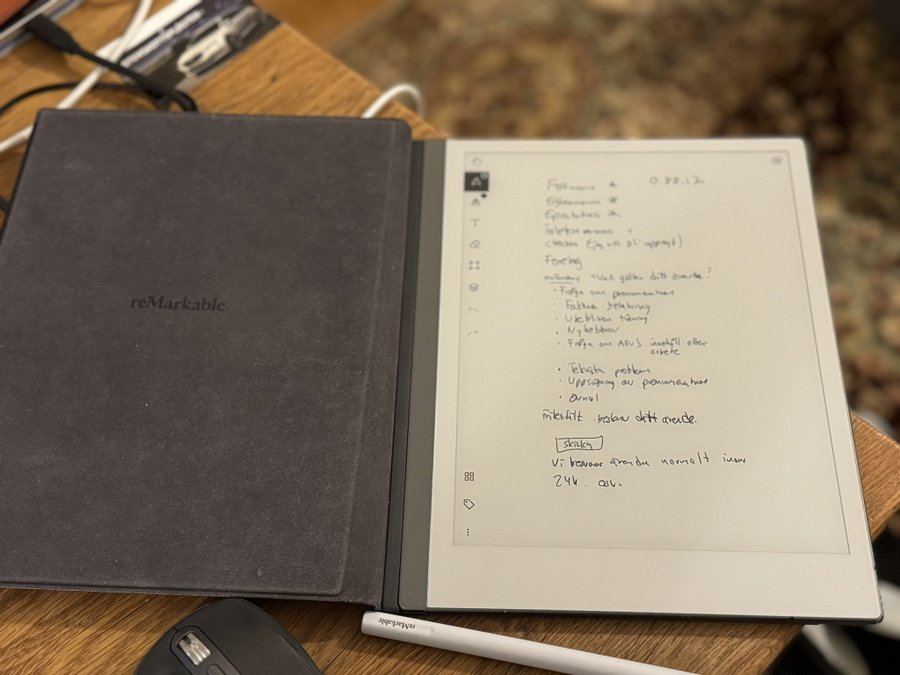 reMarkable
Förnamn *
Efternamn *
Epostadress *
Telefonnummer
(
Ej
bli uppringd)
Företag
Vad gäller ditt ärende?
• Fråga om prenumeration
• Faktura betalning
• Utebliven tidning
• Nyhetsbrev
• Fråga om innehåll eller
arbete
• Teknisk problem
• Uppsägning av prenumeration
• övrigt
ditt ärende.
Skicka
Vi ärenden normalt inom
24h. osv.
reMarkable